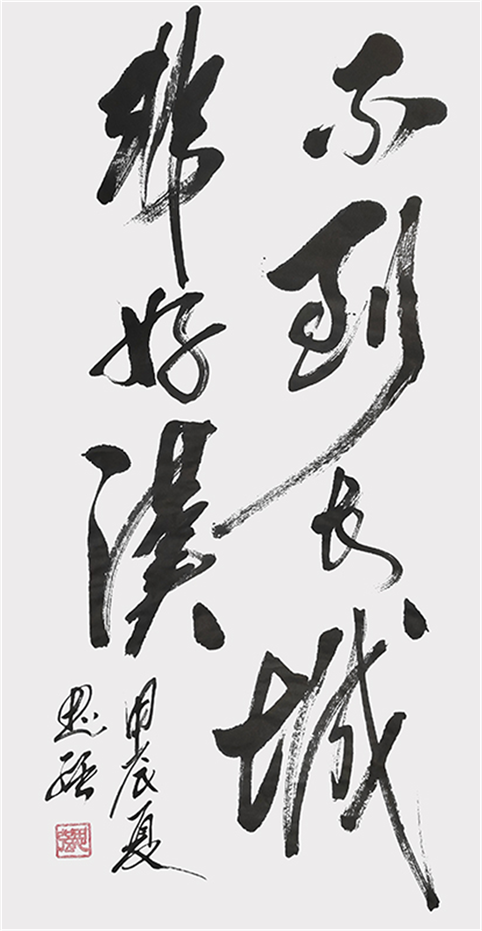 不到长城
非好汉
甲辰夏